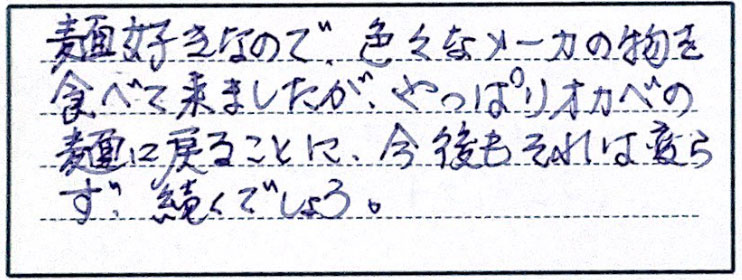 麺好きなので、色々なメーカの物を
食べて来ましたが、やっぱりオカベの
麺に戻ることに、今後もそれは変ら
ず、続くでしょろ。